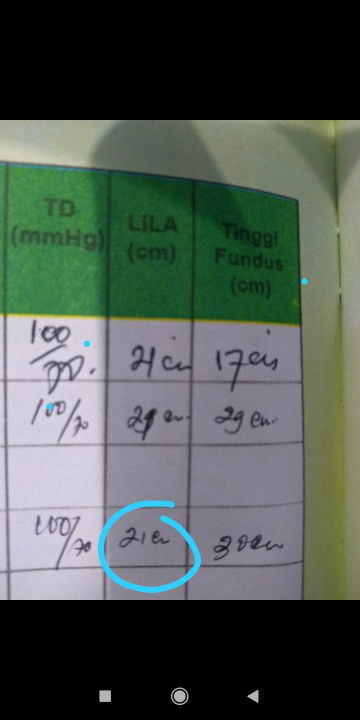 TD (mmHg)
LiLA (cm)
Tinggi Fundus (cm)
100/70. 21 cm 17 cm
100/70 cm 29 cm
100/70 21 cm 30 cm